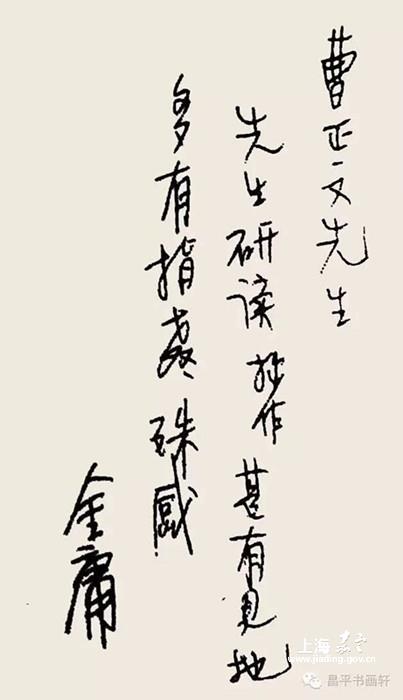 曹正文先生
先生研读拙作甚有見地
多有指教殊感
金庸
上海嘉定
www.jiading.gov.cn
昌平书画轩